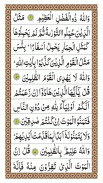 وَاللّٰهُ ذُو الْفَضْلِ الْعَظِيْمِ ۝ مَثَلُ
الَّذِيْنَ حُمِّلُوا التَّوْرٰىةَ ثُمَّ لَمْ يَحْمِلُوْهَا
كَمَثَلِ الْحِمَارِ يَحْمِلُ اَسْفَارًا ؕ بِئْسَ
مَثَلُ الْقَوْمِ الَّذِيْنَ كَذَّبُوْا بِاٰيٰتِ اللّٰهِ ؕ
وَاللّٰهُ لَا يَهْدِي الْقَوْمَ الظّٰلِمِيْنَ ۝
قُلْ يٰۤاَيُّهَا الَّذِيْنَ هَادُوْۤا اِنْ زَعَمْتُمْ
اَنَّكُمْ اَوْلِيَآءُ لِلّٰهِ مِنْ دُوْنِ النَّاسِ
فَتَمَنَّوُا الْمَوْتَ اِنْ كُنْتُمْ صٰدِقِيْنَ ۝
وَلَا يَتَمَنَّوْنَهٗۤ اَبَدًۢا بِمَا قَدَّمَتْ اَيْدِيْهِمْ ؕ
وَاللّٰهُ عَلِيْمٌۢ بِالظّٰلِمِيْنَ ۝ قُلْ اِنَّ
الْمَوْتَ الَّذِيْ تَفِرُّوْنَ مِنْهُ فَاِنَّهٗ